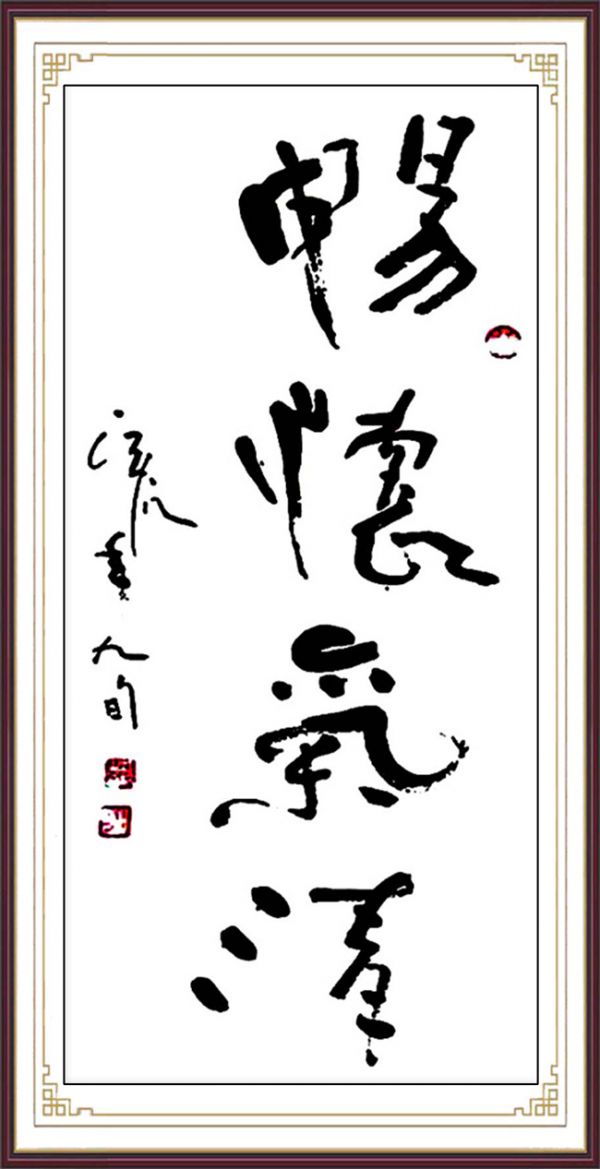 暢懷氣清
書九旬